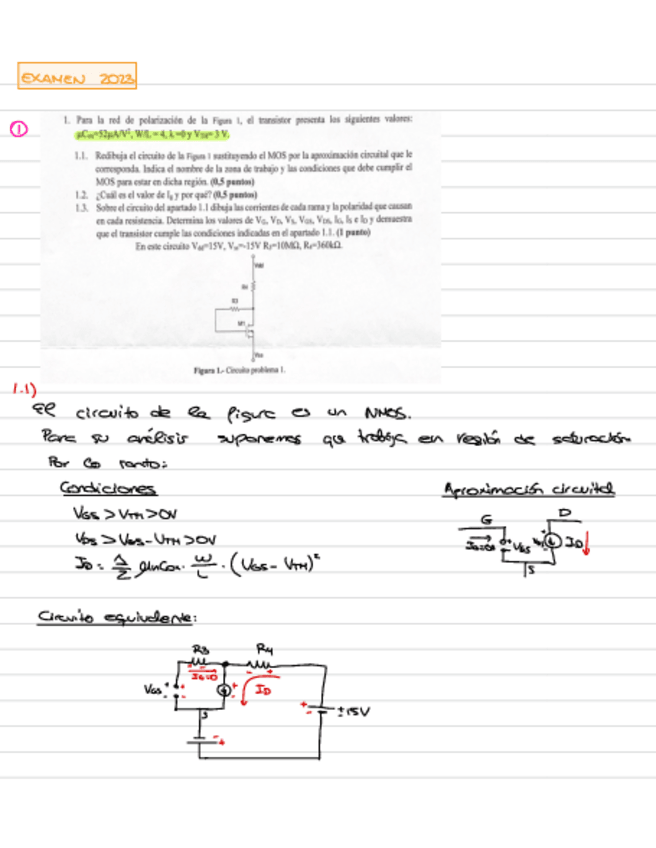 EXAMEN 2023
①
1. Para la red de polarización de la Figura 1, el transistor presenta los siguientes valores:
W/L = 4, λ=0 y
1.1. Redibuja el circuito de la Figura 1 sustituyendo el MOS por la aproximación circuital que le
corresponda. Indica el nombre de la zona de trabajo y las condiciones que debe cumplir el
MOS para estar en dicha región. (0,5 puntos)
1.2. ¿Cuál es el valor de I_g y por qué? (0,5 puntos)
1.3. Sobre el circuito del apartado 1.1 dibuja las corrientes de cada rama y la polaridad que causan
en cada resistencia. Determina los valores de V_G, V_D, V_S, V_GS, V_DS, I_G, I_S e I_D y demuestra
que el transistor cumple las condiciones indicadas en el apartado 1.1. (1 punto)
En este circuito V_dd=15V, V_ss=-15V R_3=10MΩ, R_4=360kΩ.
R4
R3
M1
Vss
Figura 1.- Circuito problema 1.
1.1)
El circuito de la figura es un NMOS.
Para su análisis suponemos que trabaja en región de saturación.
Por lo tanto:
Condiciones
Aproximación circuital
VGS > VTH > 0V
VDS > VGS - VTH > 0V
ID = 1/2 μnCox · W/L · (VGS - VTH)²
G
D
IG=0
VGS
ID
S
Circuito equivalente:
R3
R4
IG=0
VGS
ID
S
15V